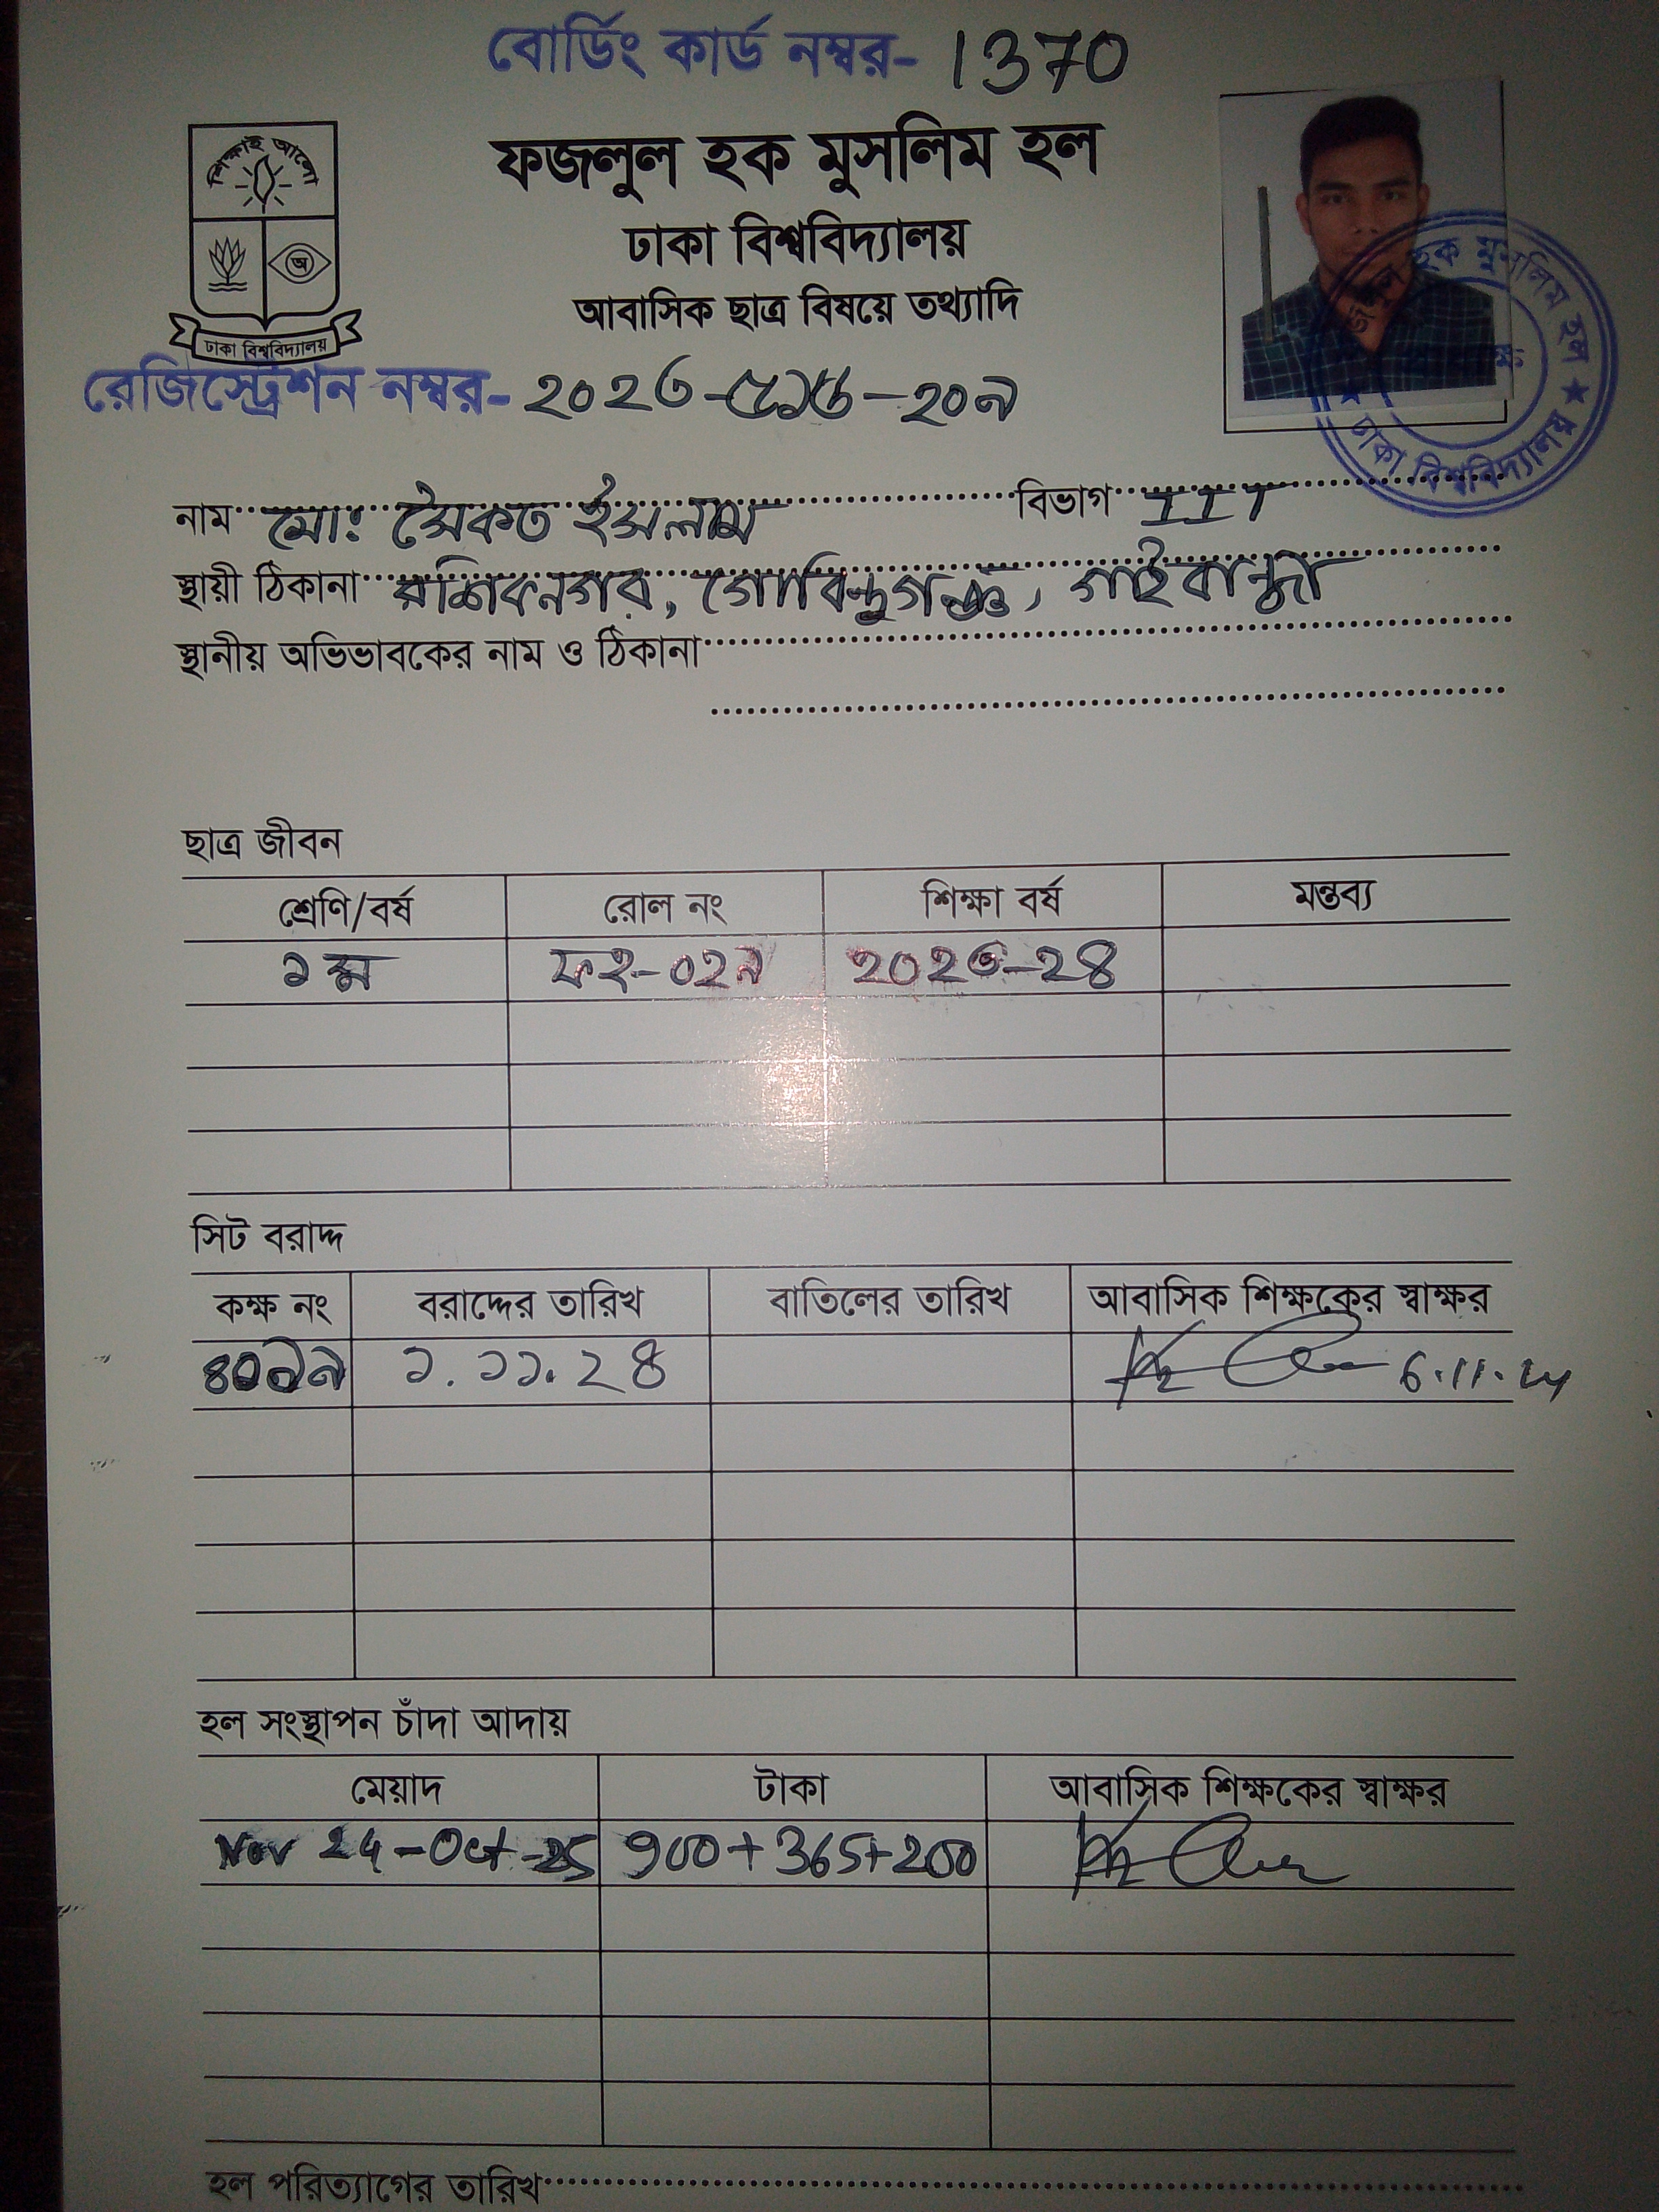 বোর্ডিং কার্ড নম্বর- 1370
ফজলুল হক মুসলিম হল
ঢাকা বিশ্ববিদ্যালয়
আবাসিক ছাত্র বিষয়ে তথ্যাদি
শিক্ষাই আলো
অ
ঢাকা বিশ্ববিদ্যালয়
হক মুসলিম হল ★ ঢাকা বিশ্ববিদ্যালয় ★
রেজিস্ট্রেশন নম্বর- ২০২৩-
নাম মো: সৈকত ইসলাম বিভাগ IIT
স্থায়ী ঠিকানা গোবিন্দগঞ্জ, গাইবান্ধা
স্থানীয় অভিভাবকের নাম ও ঠিকানা
ছাত্র জীবন
শ্রেণি/বর্ষ রোল নং শিক্ষা বর্ষ মন্তব্য
১ম ফহ-০২৯ ২০২৩-২৪
সিট বরাদ্দ
কক্ষ নং বরাদ্দের তারিখ বাতিলের তারিখ আবাসিক শিক্ষকের স্বাক্ষর
১.১১.২৪ 6.11.24
হল সংস্থাপন চাঁদা আদায়
মেয়াদ টাকা আবাসিক শিক্ষকের স্বাক্ষর
Nov 24-Oct-25 900+365+200
হল পরিত্যাগের তারিখ